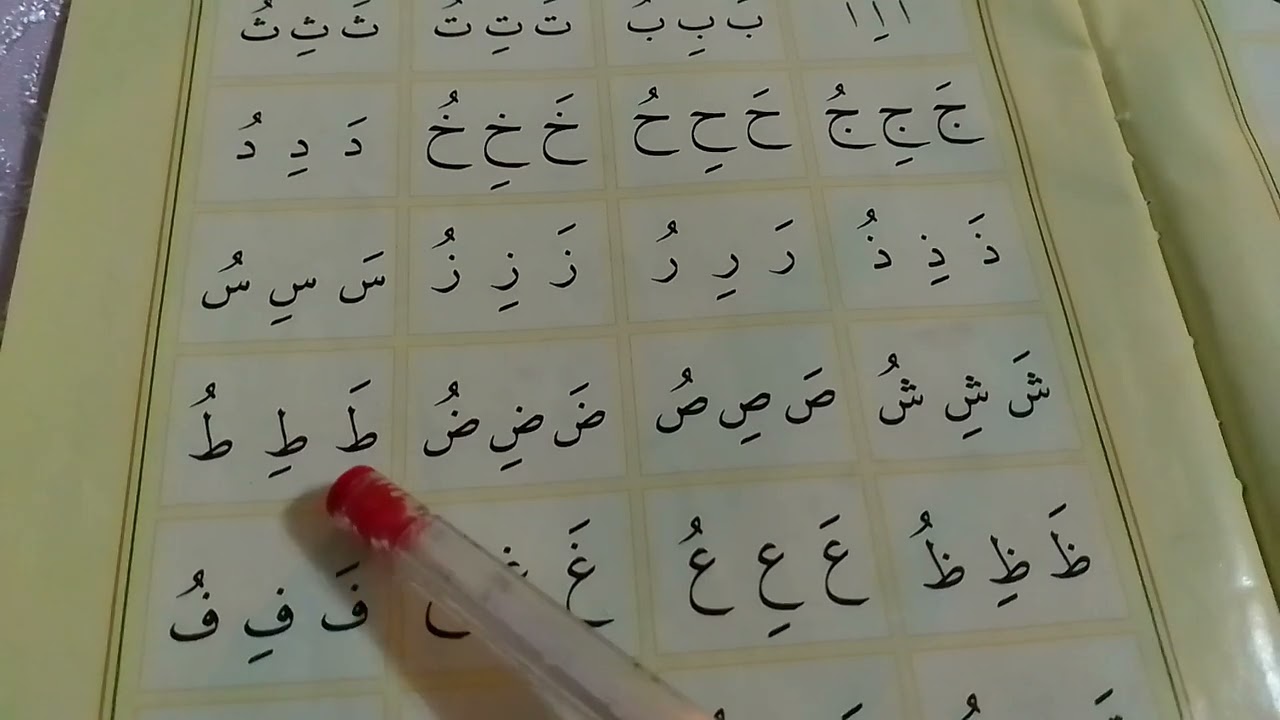 اَ اِ اُ بَ بِ بُ تَ تِ تُ ثَ ثِ ثُ
جَ جِ جُ حَ حِ حُ خَ خِ خُ دَ دِ دُ
ذَ ذِ ذُ رَ رِ رُ زَ زِ زُ سَ سِ سُ
شَ شِ شُ صَ صِ صُ ضَ ضِ ضُ طَ طِ طُ
ظَ ظِ ظُ عَ عِ عُ غَ فَ فِ فُ